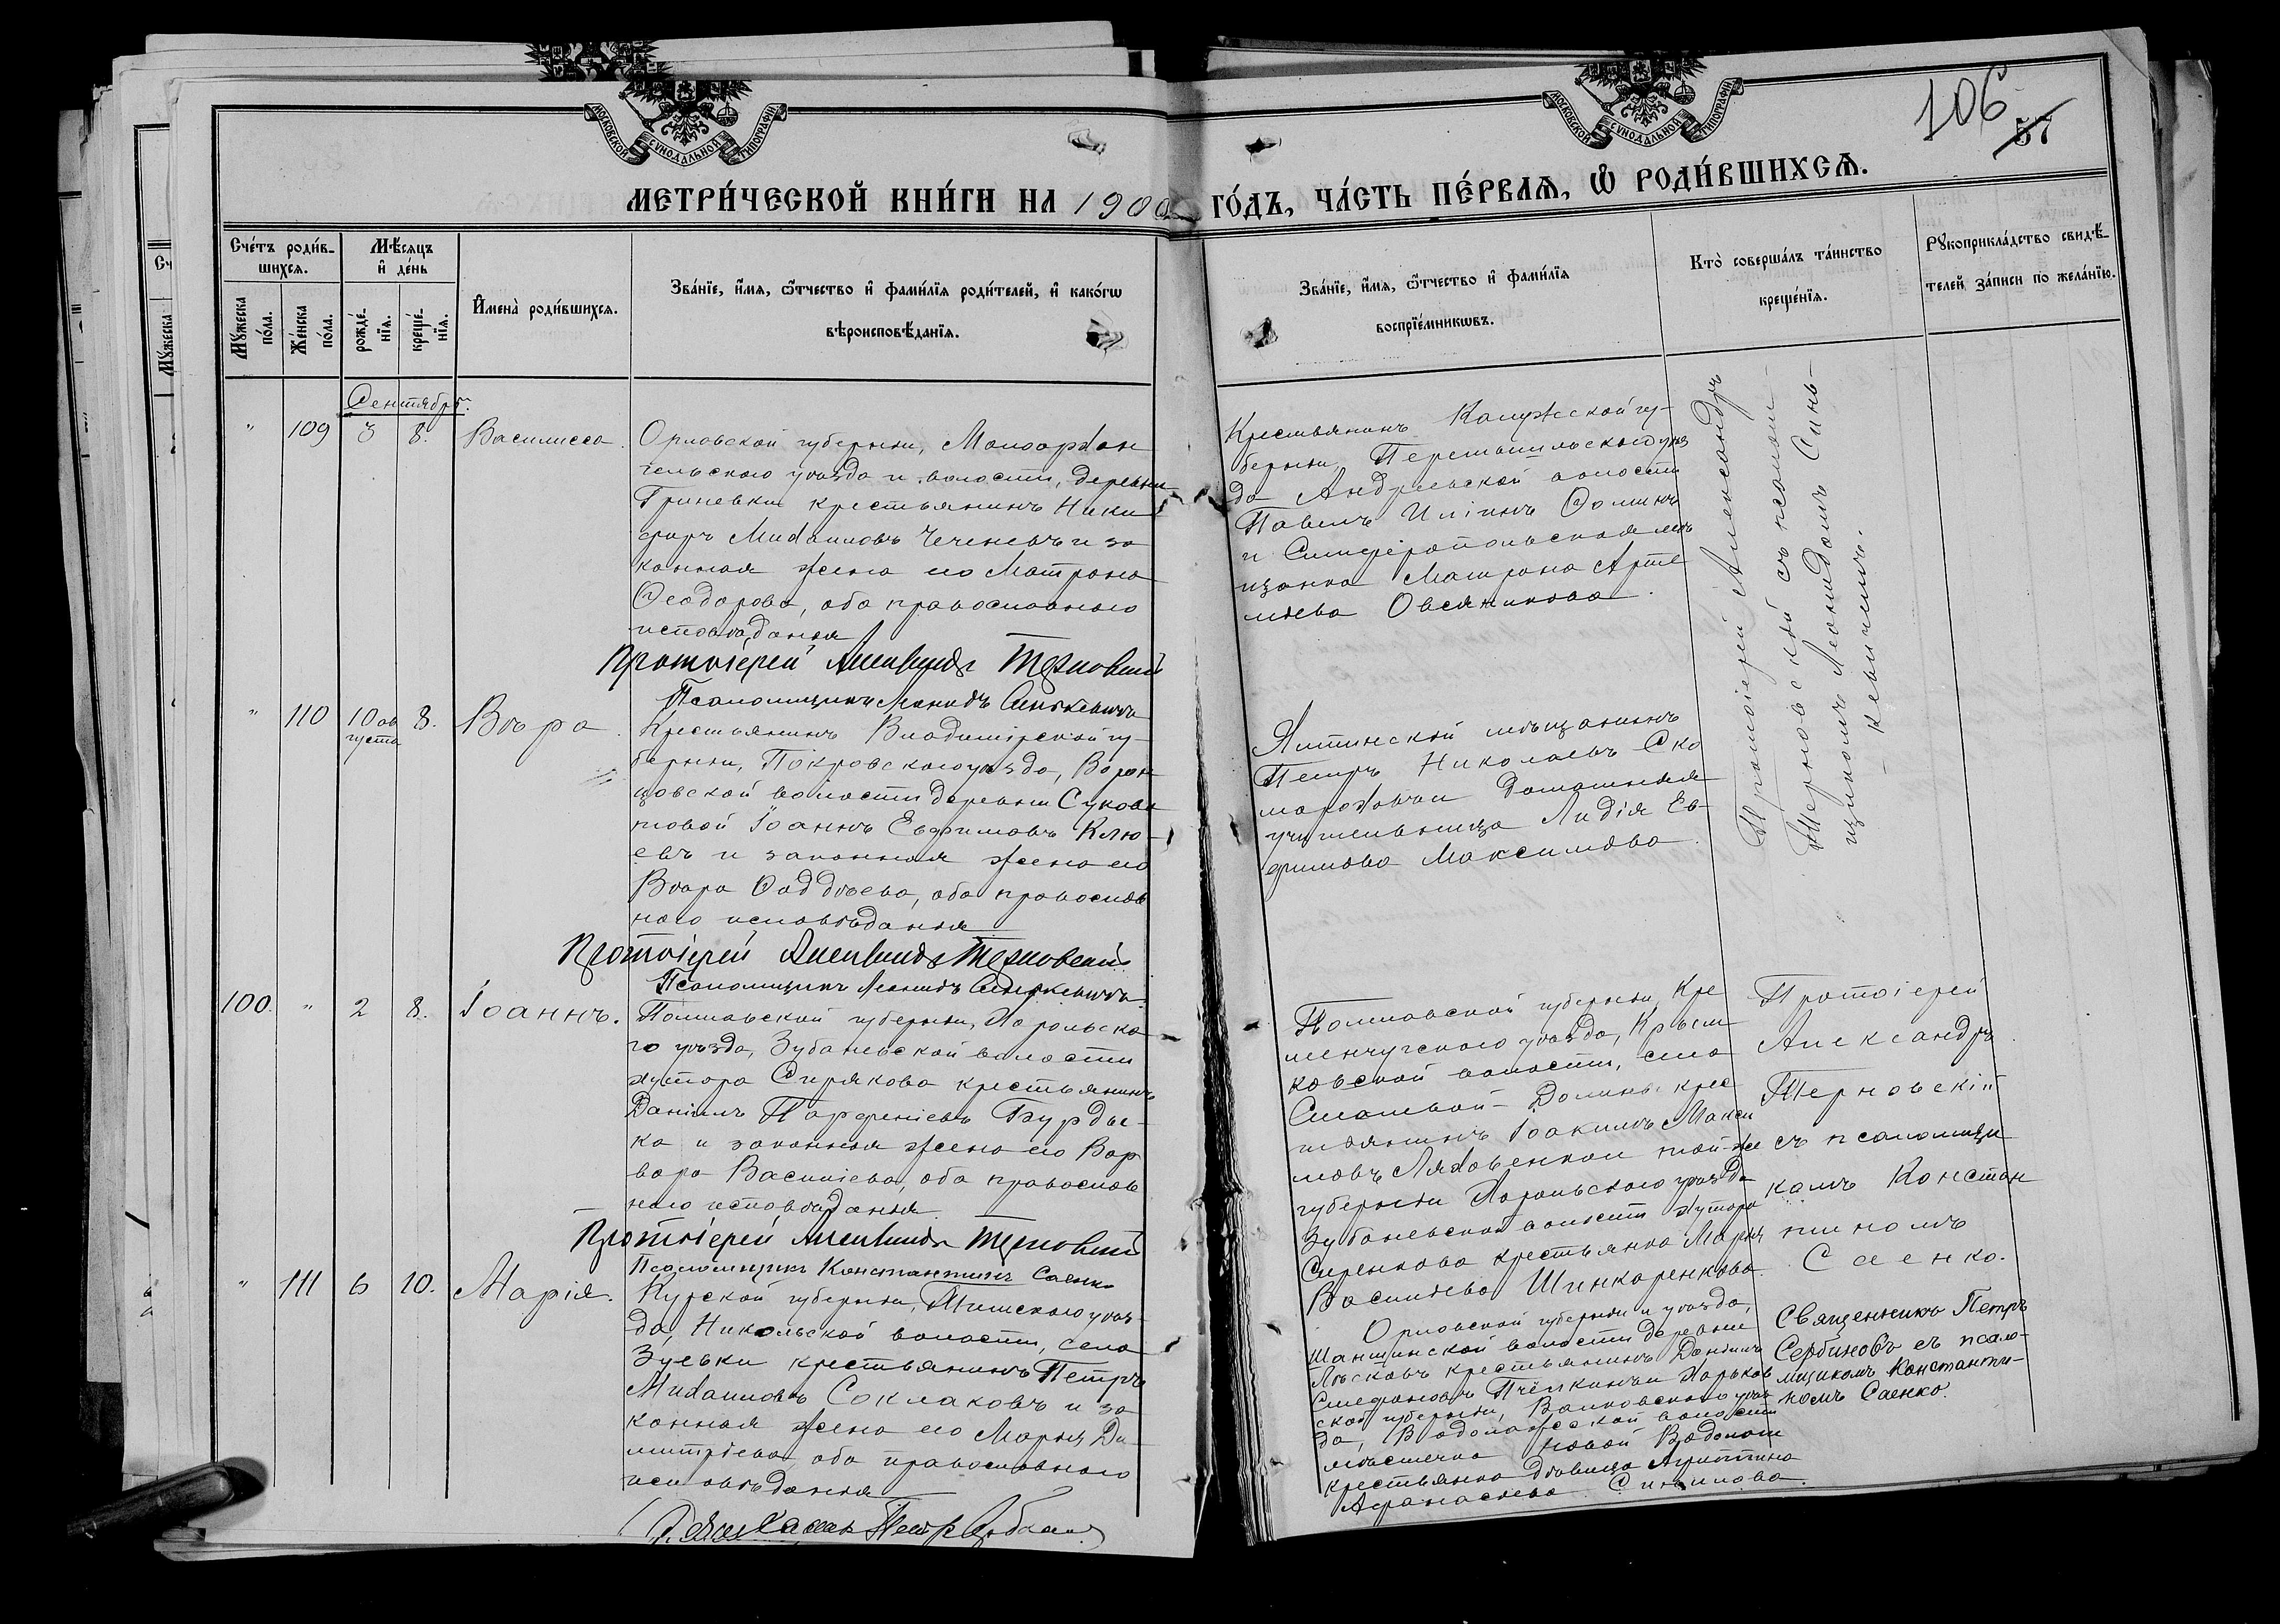 МОСКОВСКОЙ СѴНОДАЛЬНОЙ ТИПОГРАФІИ
МОСКОВСКОЙ СѴНОДАЛЬНОЙ ТИПОГРАФІИ
106
57
МЕТРИ́ЧЕСКОЙ КНИ́ГИ НА 1900 ГО́ДЪ, ЧА́СТЬ ПЕ́РВАѦ, Ѡ РОДИ́ВШИХСѦ.
Сче́тъ роди́в-
шихсѧ.
Мꙋ́жеска
по́ла.
Же́нска
по́ла.
Мѣ́сѧцъ
и҆ де́нь
рожде́-
нїѧ.
креще́-
нїѧ.
И҆мена̀ роди́вшихсѧ.
Зва́нїе, и҆́мѧ, ѻ҆́тчество и҆ фами́лїѧ роди́телей, и҆ како́гѡ
вѣроисповѣ́данїѧ.
Зва́нїе, и҆́мѧ, ѻ҆́тчество и҆ фами́лїѧ
воспрїе́мникѡвъ.
Кто̀ соверша́лъ та́инство
креще́нїѧ.
Рꙋкоприкла́дство свидѣ́-
телей за́писи по жела́нїю.
Сентябрь.
" 109 3 8. Василисса.
Орловской губерніи, Малоархан
гельскаго уѣзда и волости, деревни
Гриневки крестьянинъ Ники
форъ Михаиловъ Чеченевъ и за
конная жена его Матрона
Ѳеодорова, оба православнаго
исповѣданія
Протоіерей Александръ Терновскій
Псаломщикъ Леонидъ Синькевичъ
Крестьянинъ Калужской гу-
берніи, Перемышльскаго уѣз
да Андреевской волости
Павелъ Иліинъ Ѳоминъ
и Симферопольская мѣ
щанка Матрона Арте
міева Овсяникова.
Протоіерей Александръ
Терновскій съ псалом-
щикомъ Леонидомъ Синь-
кевичемъ.
" 110 10 ав
густа 8. Вѣра.
Крестьянинъ Владимірской гу-
берніи, Покровскаго уѣзда, Ворон
цовской волости деревни Сукова
товой Іоаннъ Евфимовъ Клю-
евъ и законная жена его
Вѣра Ѳаддѣева, оба православ
наго исповѣданія
Протоіерей Александръ Терновскій
Псаломщикъ Леонидъ Синькевичъ
Ялтинской мѣщанинъ
Петръ Николаевъ Ско
мороховъ и домашняя
учительница Лидія Ев-
фимова Максимова.
100. " 2 8. Іоаннъ.
Полтавской губерніи, Хорольска-
го уѣзда, Зубаневской волости
хутора Сирякова крестьянинъ
Даніилъ Парфеніевъ Бурды-
ка и законная жена его Вар
вара Василіева, оба православ
наго исповѣданія.
Протоіерей Александръ Терновскій
Псаломщикъ Константинъ Саенко
Полтавской губерніи, Кре
менчугскаго уѣзда, Крыли
ковской волости, села
Долины крес
тьянинъ Іоакимъ Макси
мовъ Ляховенко и той-же
губерніи Хорольскаго уѣзда
Зубаневской волости хутора
Сиренкова крестьянка Марія
Василіева Шинкаренкова.
Протоіерей
Александръ
Терновскій
съ псаломщи
комъ Констан
тиномъ
Саенко.
" 111 6 10. Марія.
Курской губерніи, Тимскаго уѣз-
да, Никольской волости, села
Зуевки крестьянинъ Петръ
Михаиловъ Соклаковъ и за
конная жена его Марія Ди-
митріева, оба православнаго
исповѣданія
Священникъ Петръ Сербиновъ
Орловской губерніи и уѣзда,
волости деревни
Лѣсковъ крестьянинъ Даніилъ
Стефановъ Пчёлкинъ и Харьков
ской губерніи, Валковскаго уѣз
да, Водолажской волости
мѣстечка Новой Водолаги
крестьянка дѣвица Агриппина
Аѳанасіева
Священникъ Петръ
Сербиновъ съ псало-
мщикомъ Константи-
номъ Саенко.